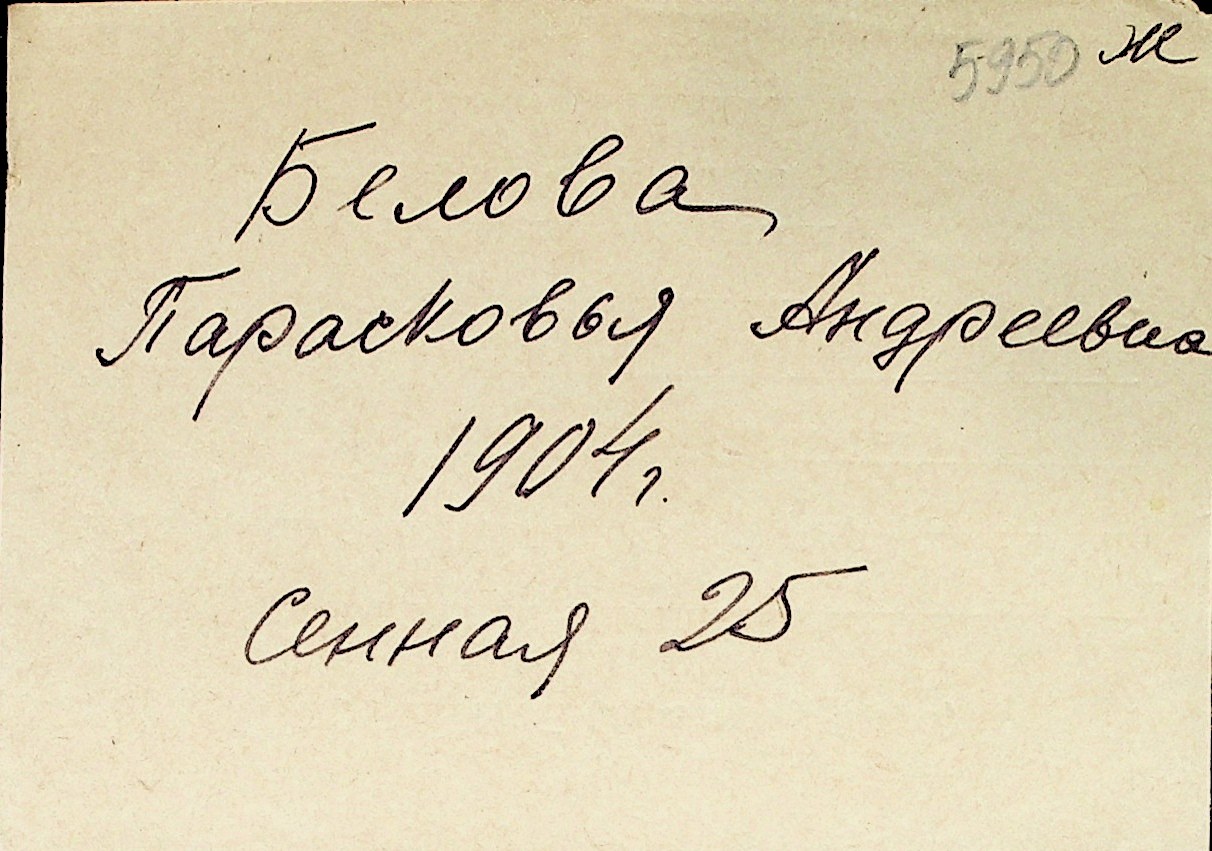 5950 ж
Белова
Парасковья Андреевна
1904 г.
Сенная 25